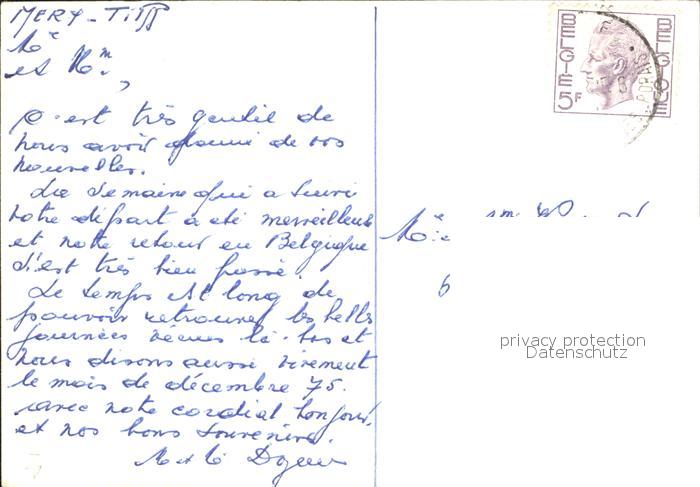 MERY-TILFF
Me
et Mm,
C'est très gentil de
nous avoir donné de vos
nouvelles.
La semaine qui a suivi
votre départ a été merveilleuse
et notre retour en Belgique
s'est très bien passé.
Le temps est long de
pouvoir retrouver les belles
journées vécues là-bas et
nous disons aussi vivement
le mois de décembre 75.
avec notre cordial bonjour,
et nos bons souvenirs.
BELGIE
5F
BELGIQUE
privacy protection
Datenschutz